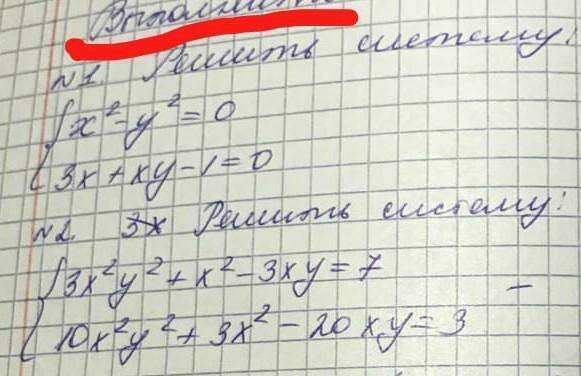 Выполнить
№1. Решить систему:
x² - y² = 0
3x + xy - 1 = 0
№2. Решить систему:
3x²y² + x² - 3xy = 7
10x²y² + 3x² - 20xy = 3